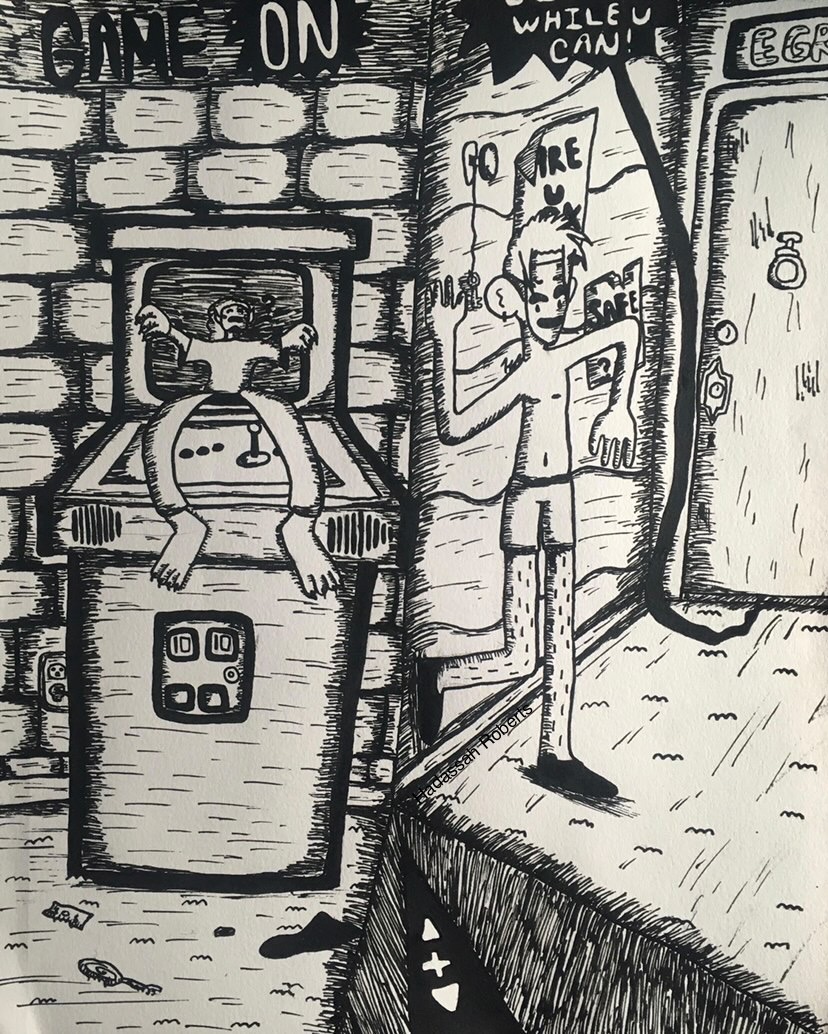 GAME ON
WHILE U
CAN!
EGR
ARE
U
SAFE
?
10 10
Hadassah Roberts